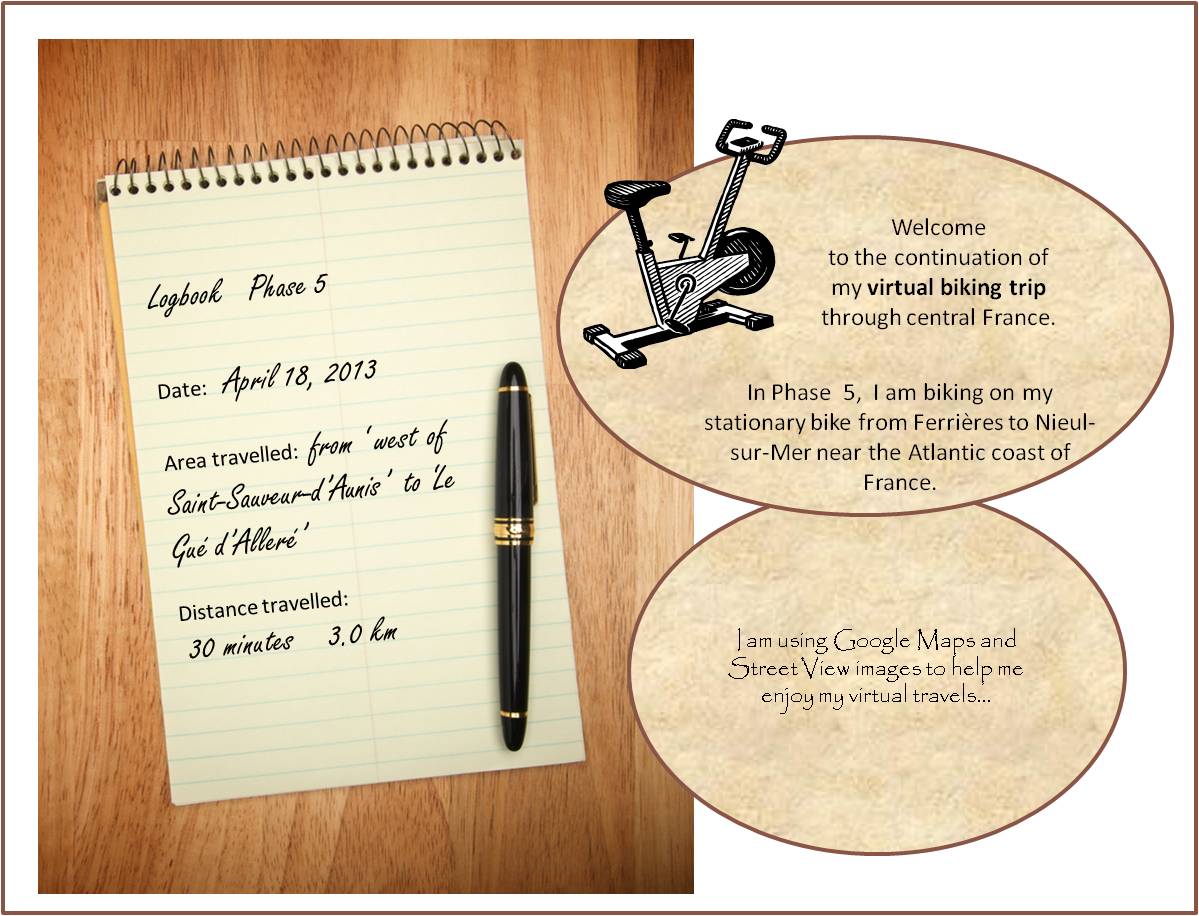 Logbook Phase 5
Date: April 18, 2013
Area travelled: from ‘ west of
Saint-Sauveur-d’Aunis’ to ‘Le
Gué d’Alleré’
Distance travelled:
30 minutes 3.0 km
Welcome
to the continuation of
my virtual biking trip
through central France.
In Phase 5, I am biking on my
stationary bike from Ferrières to Nieul-
sur-Mer near the Atlantic coast of
France.
I am using Google Maps and
Street View images to help me
enjoy my virtual travels...